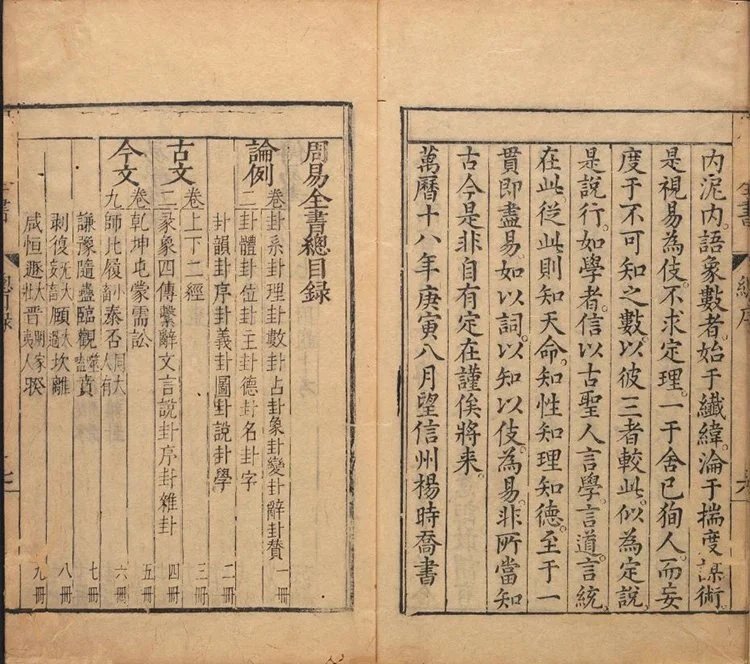 内泥内。語象數者。始于纖緯淪于揣度謀術。
是視易為伎。不求定理。一于舍已狥人。而妄
度于不可知之數。以彼三者較此。似為定說。
是說行。如學者。信以古聖人言學。言道言統。
在此。從此則知天命。知性知理知德。至于一
貫即盡易。如以詞。以知以伎。為易。非所當知
古今是非自有定在謹俟將來。
萬曆十八年庚寅八月望信州楊時喬書
全書 總序 六
周易全書總目錄
論例
卷 卦系卦理卦數占卦象卦變卦辭卦贊 一冊
二 卦體卦位卦主卦德卦名卦字 二冊
卦韻卦序卦義卦圖卦說卦學
古文
卷 上下二經 三冊
二 彖象四傳繫辭文言說卦序卦雜卦 四冊
今文
卷 乾坤屯蒙需訟 五冊
九 師比履小畜泰否同人大有 六冊
謙豫隨蠱臨觀噬嗑賁 七冊
剝復无妄大畜頤大過坎離 八冊
咸恒遯大壯晉明夷家人睽 九冊
全書 總目錄 七